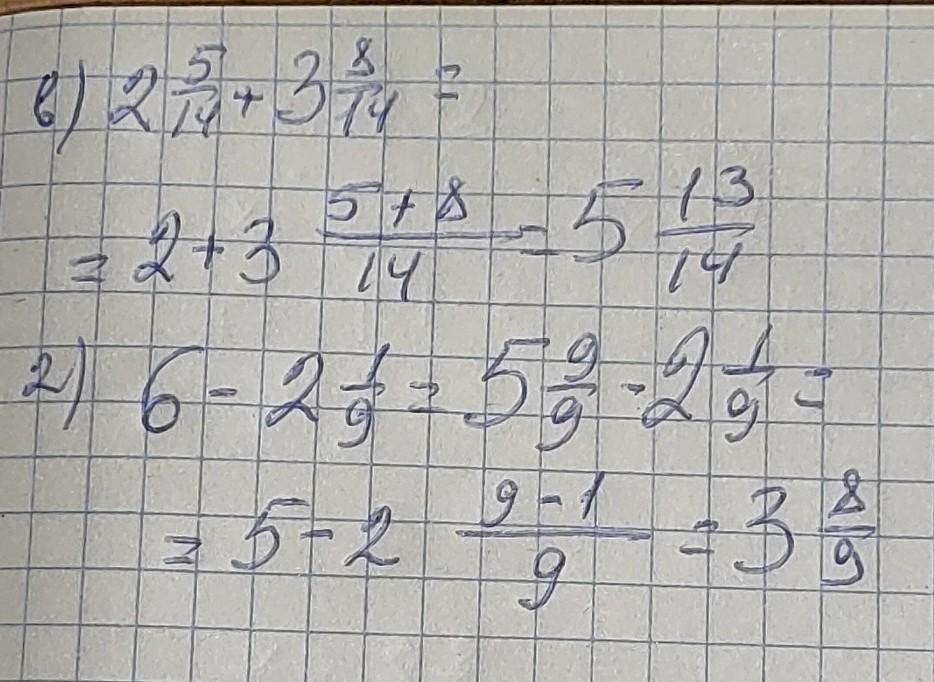 в) 2 5/14 + 3 8/14 =
= 2 + 3 (5 + 8)/14 = 5 13/14
г) 6 - 2 1/9 = 5 9/9 - 2 1/9 =
= 5 - 2 (9 - 1)/9 = 3 8/9